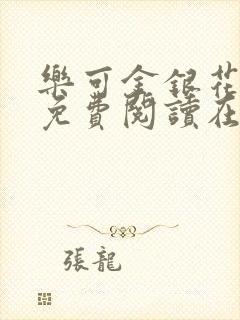 樂可金銀花
免費閱讀在
張龍